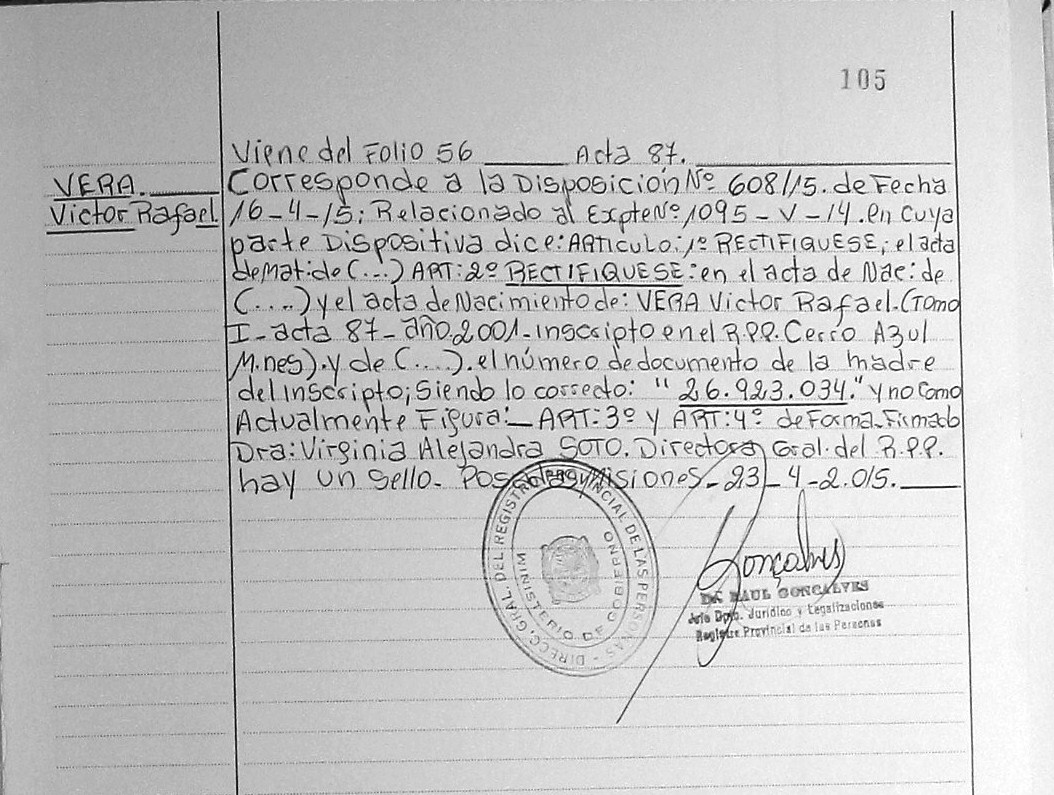 105
Viene del Folio 56 ______ Acta 87. ______
VERA. ______
Victor Rafael.
Corresponde a la Disposición Nº 608/15. de Fecha
16-4-15; Relacionado al Expte Nº 1095-V-14. en cuya
parte Dispositiva dice: ARTiculo: 1º RECTIFIQUESE, el acta
de Mat: de (...) ART: 2º RECTIFIQUESE: en el acta de Nac: de
(....) y el acta de Nacimiento de: VERA Victor Rafael. (Tomo
I - acta 87 - año. 2001. inscripto en el R.P.P. Cerro Azul
M.nes). y de (....). el número de documento de la madre
del inscripto; siendo lo correcto: "26.923.034." y no como
Actualmente Figura:_ ART: 3º y ART: 4º de Forma. Firmado
Dra: Virginia Alejandra SOTO. Directora Gral. del R.P.P.
hay un sello. Posadas, Misiones - 23 - 4 - 2.015. ______
DIRECC. GRAL. DEL REGISTRO PROVINCIAL DE LAS PERSONAS -
MINISTERIO DE GOBIERNO
Gonçalves
Dr. RAUL GONCALVES
Jefe Dpto. Jurídico y Legalizaciones
Registro Provincial de las Personas